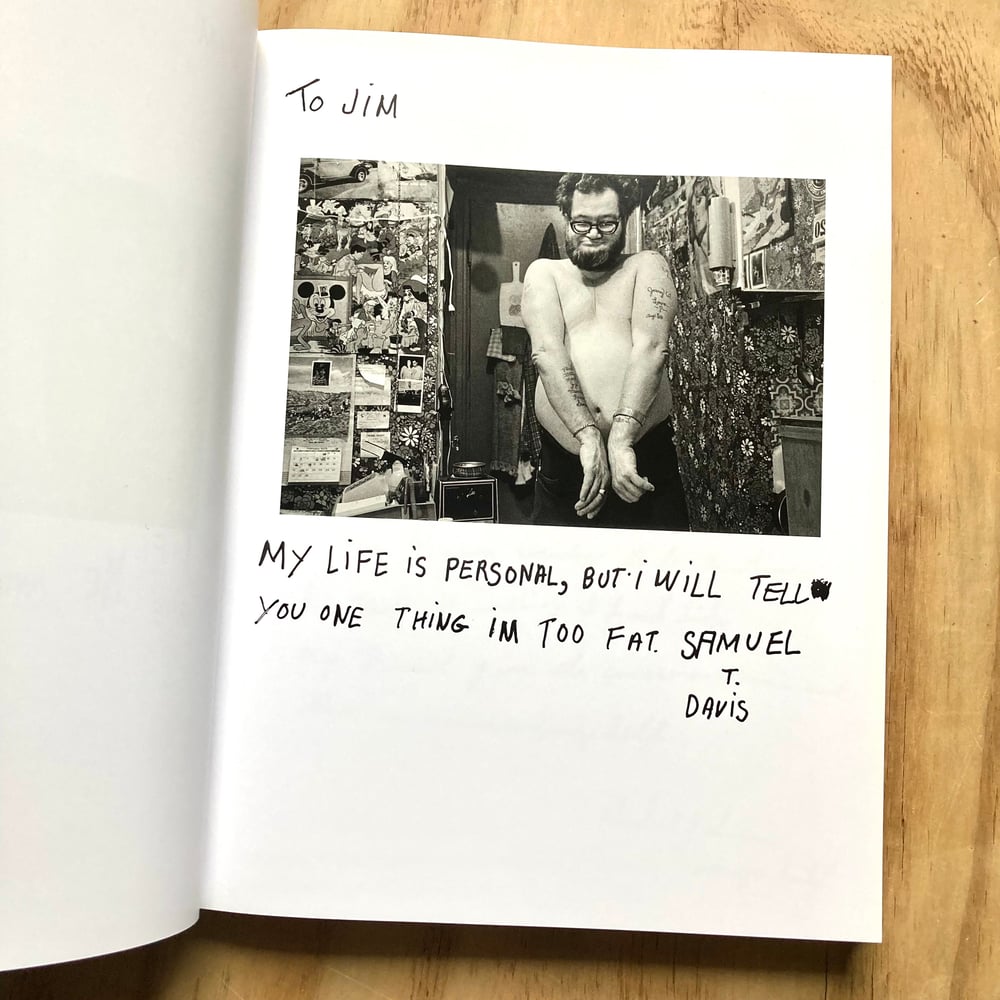 TO JIM
MY LIFE IS PERSONAL, BUT I WILL TELL
YOU ONE THING IM TOO FAT. SAMUEL
T.
DAVIS